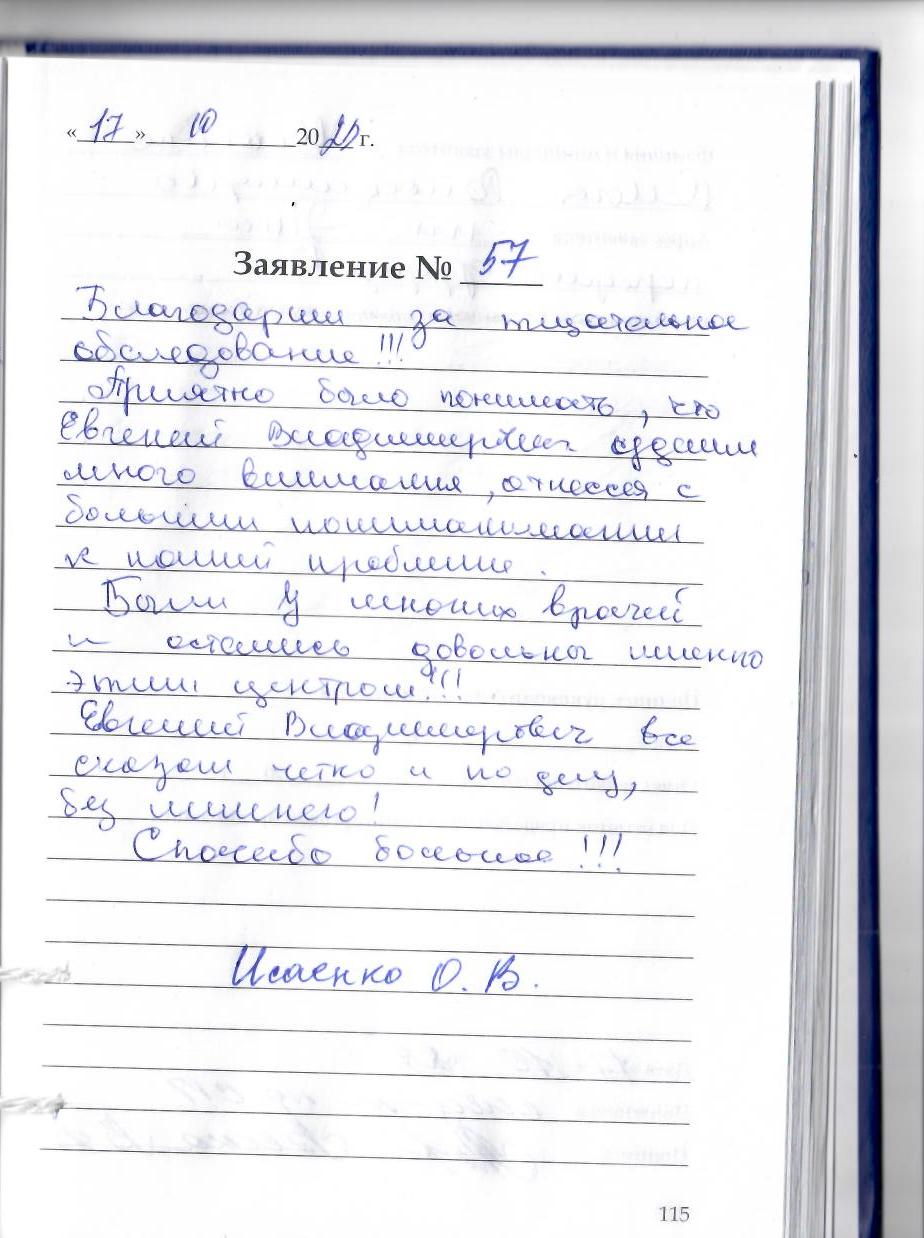 « 17 » 10 2020 г.
Заявление № 57
Благодарим за тщательное
обследование !!!
Приятно было понимать, что
Евгений Владимирович уделил
много внимания, отнесся с
большим пониманиманием
к нашей проблеме .
Были у многих врачей
и остались довольны именно
этим центром!!!
Евгений Владимирович все
сказал четко и по делу,
без лишнего!
Спасибо большое !!!
Исаенко О. В.
115